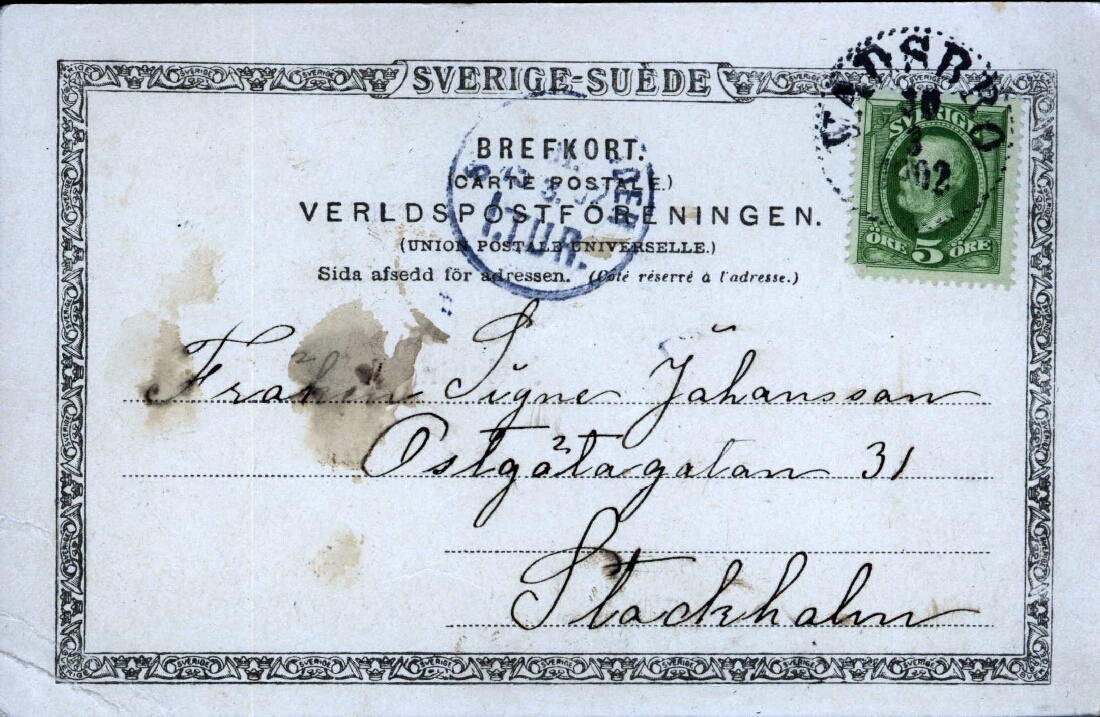 SVERIGE-SUÈDE
VADSBRO
10
3
1902
SVERIGE
ÖRE 5 ÖRE
BREFKORT.
(CARTE POSTALE.)
VERLDSPOSTFÖRENINGEN.
(UNION POSTALE UNIVERSELLE.)
Sida afsedd för adressen. (Côté réserré à l'adresse.)
1.TUR.
Fröken Signe Johansson
Östgötagatan 31
Stockholm